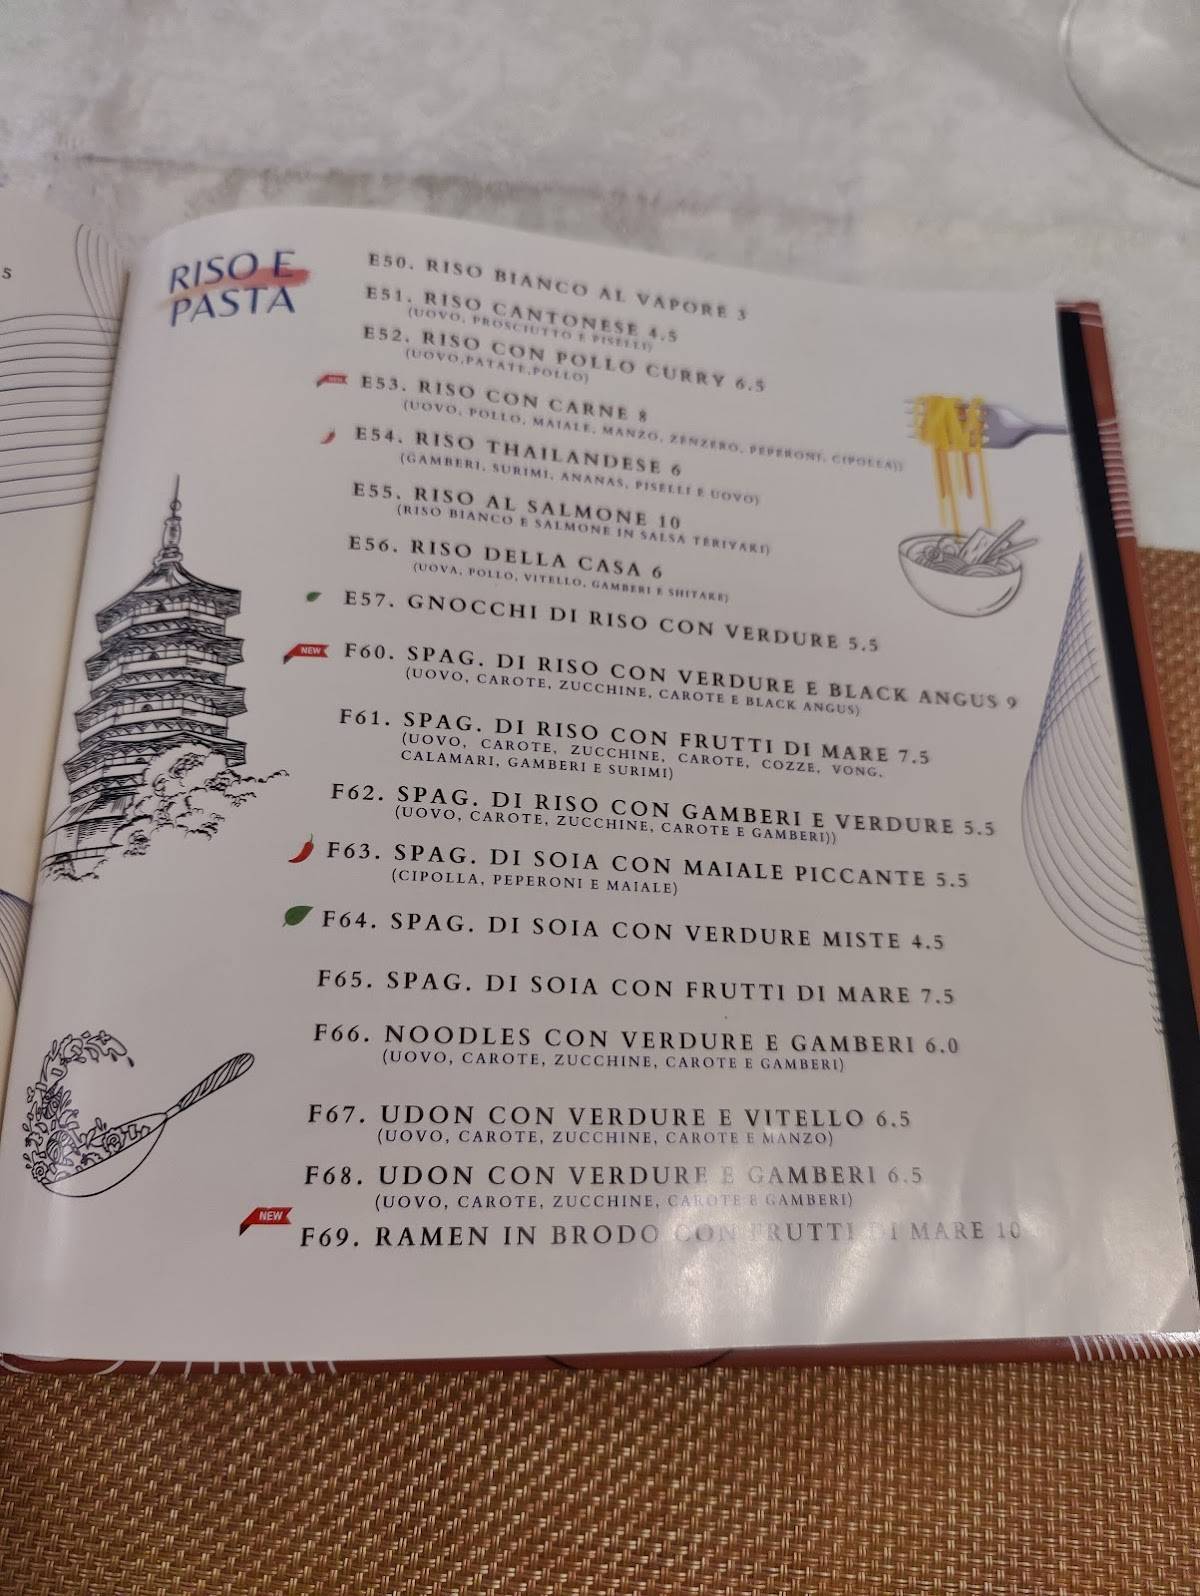 5
RISO E
PASTA
E50. RISO BIANCO AL VAPORE 3
E51. RISO CANTONESE 4.5
(UOVO, PROSCIUTTO E PISELLI)
E52. RISO CON POLLO CURRY 6.5
(UOVO,PATATE,POLLO)
NEW E53. RISO CON CARNE 8
(UOVO, POLLO, MAIALE, MANZO, ZENZERO, PEPERONI, CIPOLLA))
E54. RISO THAILANDESE 6
(GAMBERI, SURIMI, ANANAS, PISELLI E UOVO)
E55. RISO AL SALMONE 10
(RISO BIANCO E SALMONE IN SALSA TERIYAKI)
E56. RISO DELLA CASA 6
(UOVA, POLLO, VITELLO, GAMBERI E SHITAKE)
E57. GNOCCHI DI RISO CON VERDURE 5.5
NEW F60. SPAG. DI RISO CON VERDURE E BLACK ANGUS 9
(UOVO, CAROTE, ZUCCHINE, CAROTE E BLACK ANGUS)
F61. SPAG. DI RISO CON FRUTTI DI MARE 7.5
(UOVO, CAROTE, ZUCCHINE, CAROTE, COZZE, VONG,
CALAMARI, GAMBERI E SURIMI)
F62. SPAG. DI RISO CON GAMBERI E VERDURE 5.5
(UOVO, CAROTE, ZUCCHINE, CAROTE E GAMBERI))
F63. SPAG. DI SOIA CON MAIALE PICCANTE 5.5
(CIPOLLA, PEPERONI E MAIALE)
F64. SPAG. DI SOIA CON VERDURE MISTE 4.5
F65. SPAG. DI SOIA CON FRUTTI DI MARE 7.5
F66. NOODLES CON VERDURE E GAMBERI 6.0
(UOVO, CAROTE, ZUCCHINE, CAROTE E GAMBERI)
F67. UDON CON VERDURE E VITELLO 6.5
(UOVO, CAROTE, ZUCCHINE, CAROTE E MANZO)
F68. UDON CON VERDURE E GAMBERI 6.5
(UOVO, CAROTE, ZUCCHINE, CAROTE E GAMBERI)
NEW F69. RAMEN IN BRODO CON FRUTTI DI MARE 10